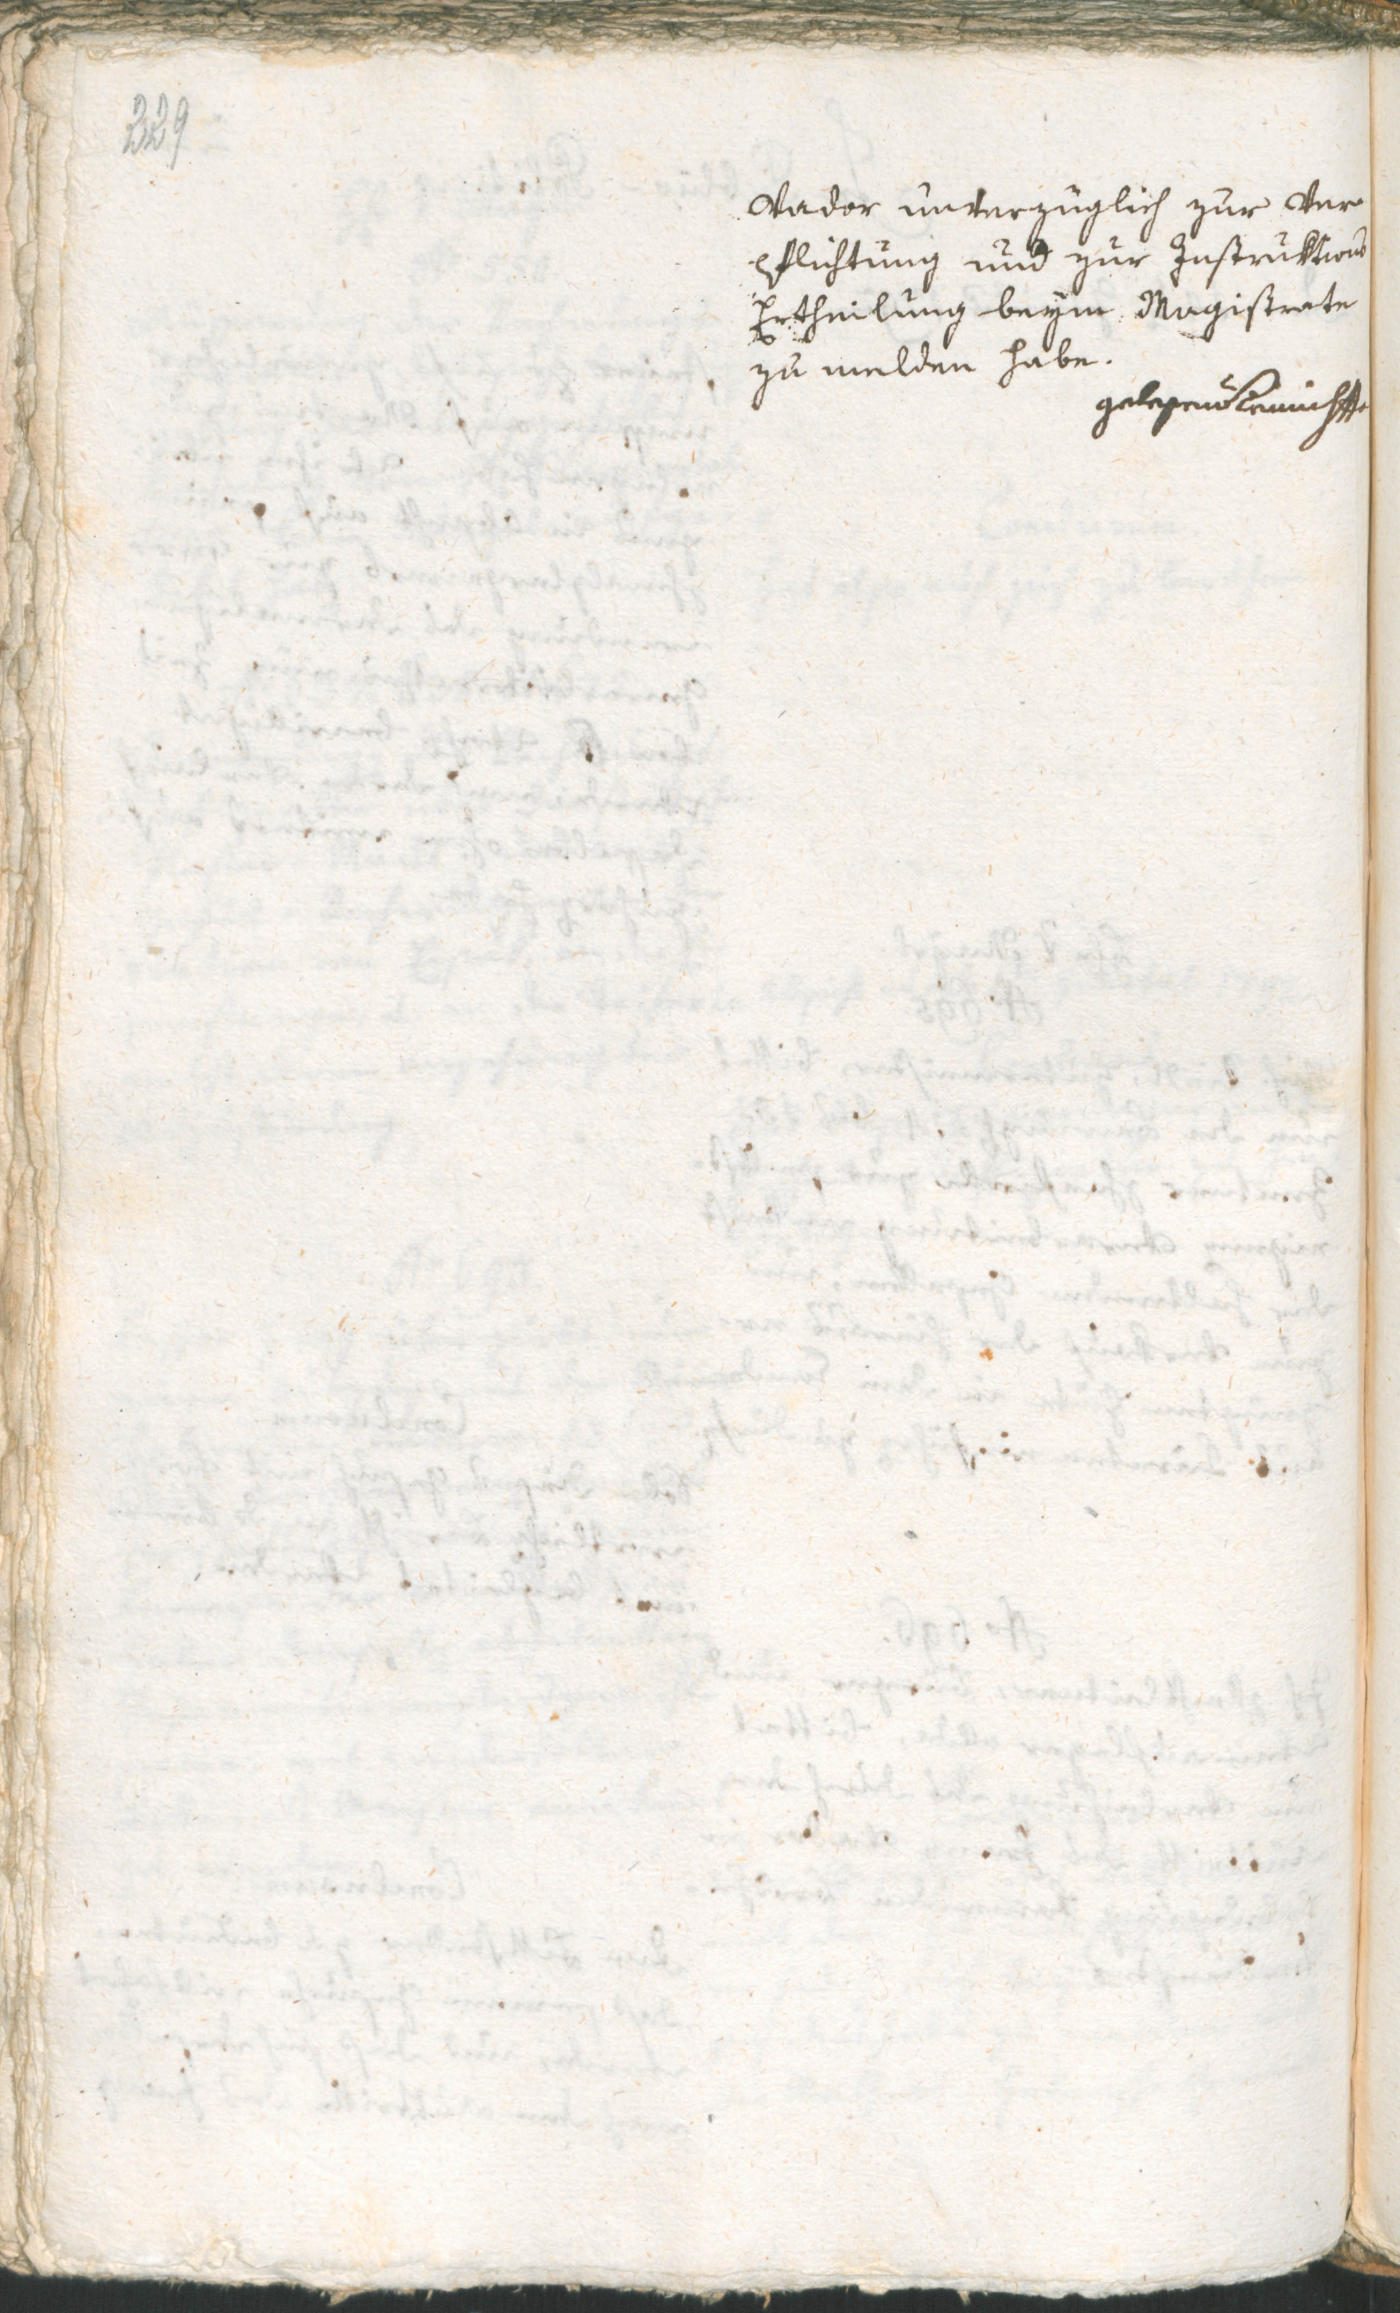 329
Vador unverzüglich zur Ver-
pflichtung und zur Instruktions
Ertheilung beym Magistrate
zu melden habe.